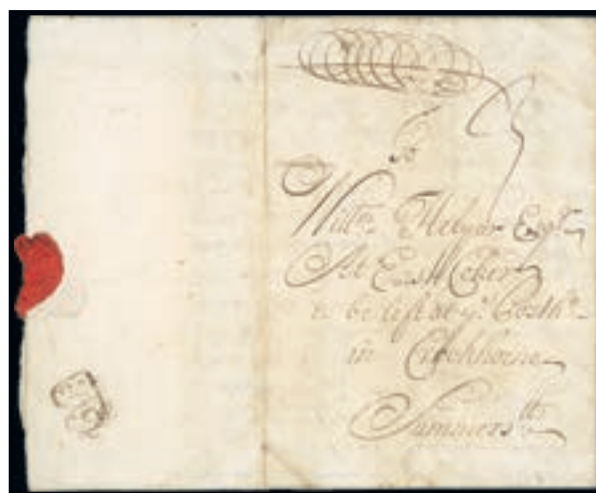 To
Willm. Helyar Esqr.
At East Coker
to be left at ye. Posth.
in Crookhorne
Summersett